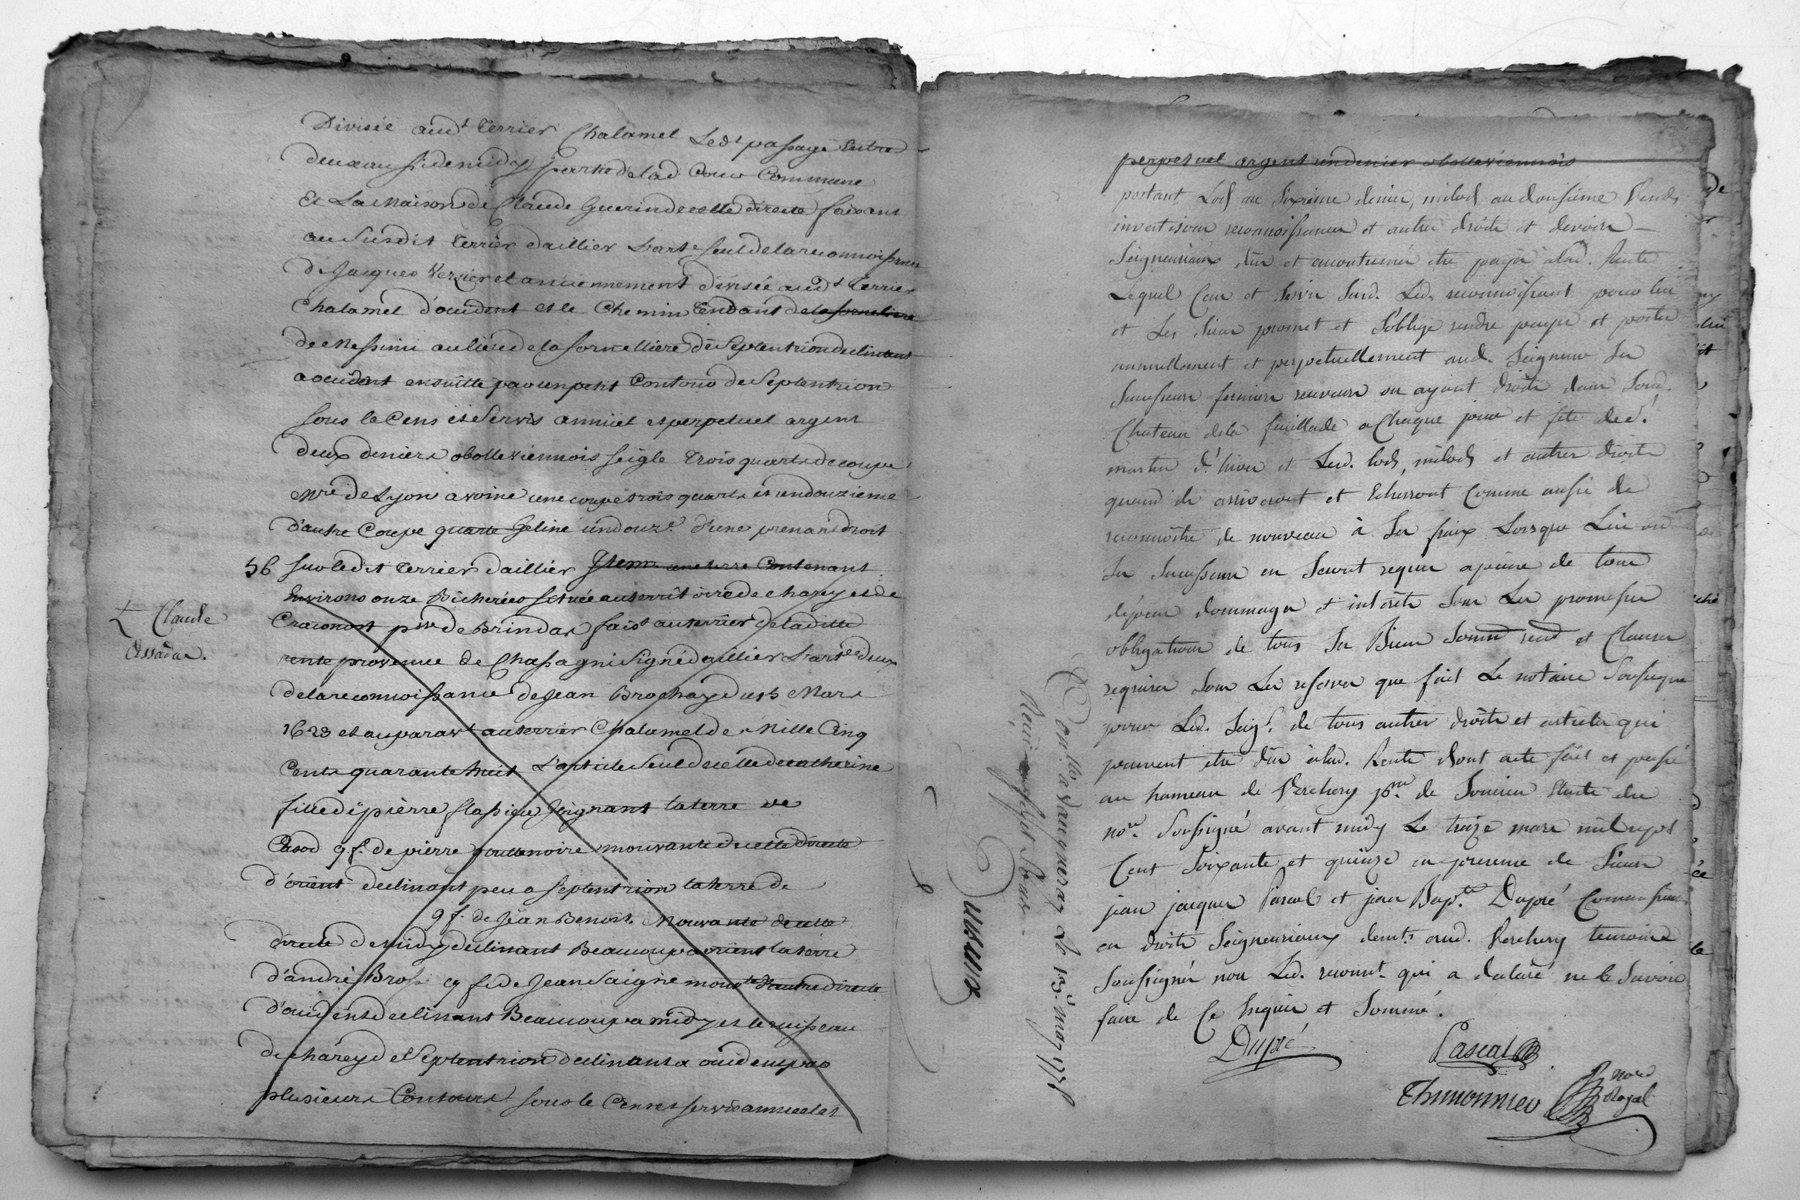 Divisée audt Terrier Chalamel Ledt passage Entre
deux aussi de midy partie de lad Cour Commune
Et La Maison de Claude Guerin de cette directe faisant
au Susdit Terrier daillier L'art. Seul de la reconnoissance
de Jacques Verrier et anciennement divisée audt Terrier
Chalamel d'occident et le Chemin Tendant de la fornelliere
de Messimi au lieu de la fornelliere de Septentrion declinant
a occident ensuitte par un petit Contour de Septentrion
sous le Cens et Servis annuel et perpetuel argent
deux deniers obolle viennois seigle Trois quarts de coupe
mre de Lyon avoine une coupe trois quarts et un douzieme
d'autre Coupe quarte Geline un douze d'une prenant droit
56 sur ledit Terrier daillier Item une terre Contenant
Environs onze Bicherées située au territoire de charey et de
Craconost psse de Brindas faist au terrier de ladite
rente provenue de Chapagni signé daillier L'art deux
de la reconnoissance de Jean Brochay du 13 Mars
1623 et auparavt au terrier Chalamel de Mille Cinq
Cents quarante huit L'article Seul de celle de catherine
fille de pierre Joignant la terre de
Casod q f. de pierre goutte noire mouvante de cette directe
d'orient declinant peu a septentrion la terre de
q f. de Jean Benoit Mouvante de cette
directe de midy declinant Beaucoup a orient la terre
d'andré Bros q f. de Jean Saigne mouvte d'autre directe
d'occident declinant Beaucoup a midy et le ruisseau
de charey de Septentrion declinant a occident par
plusieurs Contours sous le Cens et servis annuel et
Claude
Assadas.
perpetuel argent un denier obolle viennois
portant Lods au Sixieme denier, milods au dousieme Vends
investison reconnoissances et autres droits et devoirs
Seigneuriaux dus et accoutumés etre payés alad. Rente
Lequel Cens et Servis Susd. Led. reconnoissant pour lui
et Les Siens promet et S'oblige rendre payer et porter
annuellement et perpetuellement aud. Seigneur Ses
Successeurs fermiers receveurs ou ayant droits dans Sond.
Chateau de la feuillade a Chaque jour et fete de St.
martin d'hiver et Lesd. lods, milods et autres droits
quand ils arriveront et Echerront Comme aussi de
reconnoitre de nouveau à Ses fraix Lorsque Lui ou
Ses Successeurs en Seront requis apeine de tous
depens dommages et intérêts Sous Les promesses
obligations de tous Ses Biens Soumns rends et Clauses
requises Sous Les reserves que fait Le notaire Soussigné
pour Led. Seigr. de tous autres droits et articles qui
peuvent etre dus alad. Rente dont acte fait et passé
au hameau de Verchery psse de Etude du
nore Soussigné avant midy Le treize mars mil sept
Cent Soixante et quinze en presence de Sieurs
jean jacques Pascal et jean Bapte Dupré Commissaires
en droits Seigneuriaux demts aud. Verchery temoins
Soussignés non Led. reconnt. qui a declaré ne le Savoir
faire de Ce Enquis et Sommé.
Dupré Pascal
Thimonnier nore
Royal
Conllé a vaugneray Le 13e may 1775
Reçu
Dusurs